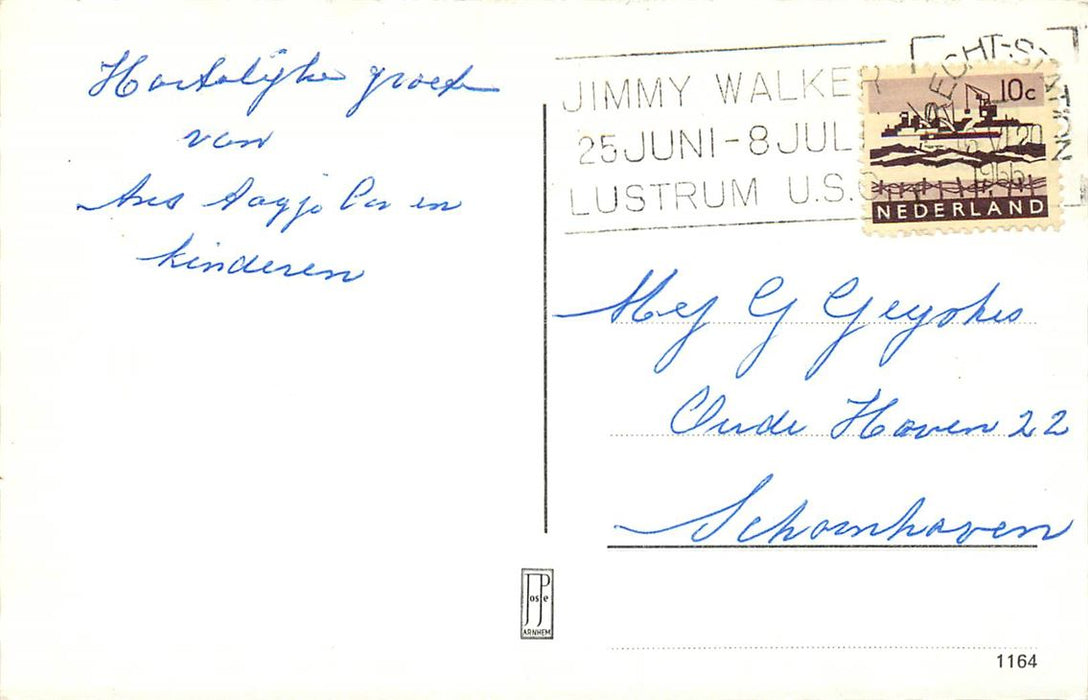 Hartelijke groeten
van
Ans Aagje Cor en
kinderen
JIMMY WALKER
25 JUNI - 8 JULI
LUSTRUM U.S.C
RECHT-STATION
VI 20
1966
10c
NEDERLAND
Mej G Geyskes
Oude Haven 22
Schoonhoven
Poste
ARNHEM
1164